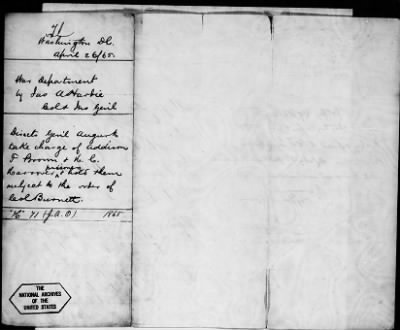 71
Washington DC.
April 26/65.
War Department
by Jas A Hardie
Col & Ins Genl
Directs Genl Augur to
take charge of Addison
F Brown & H. C.
prisoners
& hold them
subject to the order of
Col Burnett.
"H" 71 (J. A. O) 1865
THE
NATIONAL ARCHIVES
OF THE
UNITED STATES